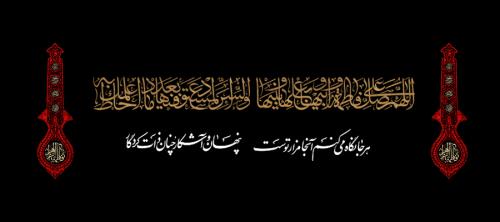 اللهم صل علی فاطمة و ابیها و بعلها و بنیها والسر المستودع فیها بعدد ما احاط به علمک
هر جا نگاه می کنم آنجا مزار توست پنهان و آشکار چنان ذات کردگار